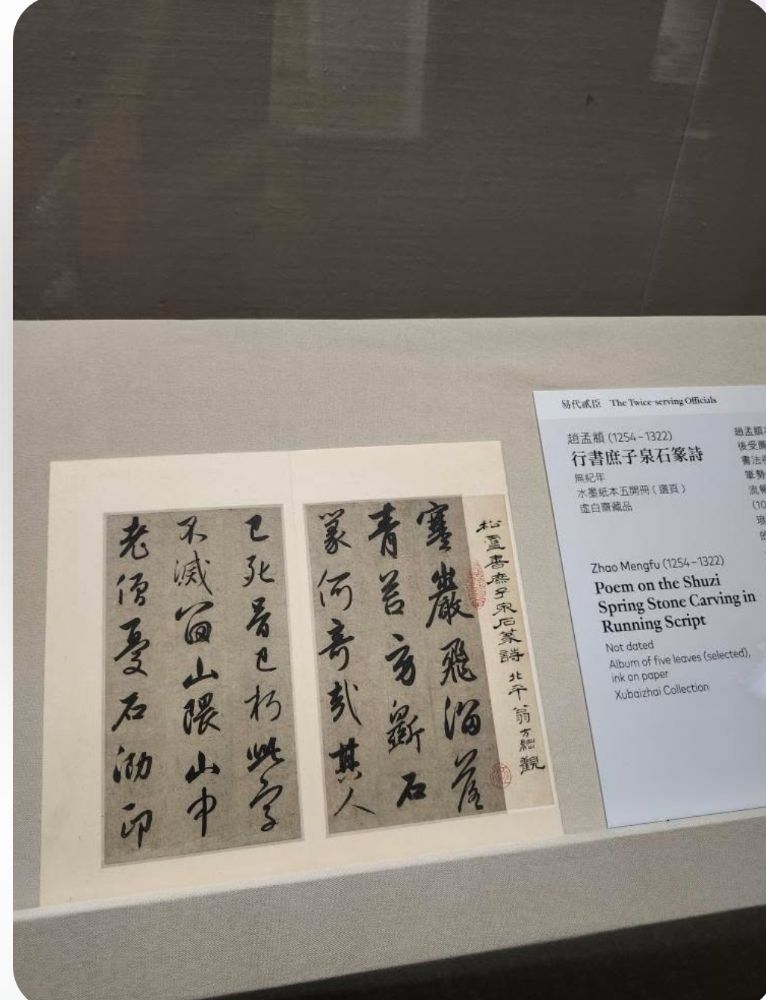 松雪書庶子泉石篆詩 北平翁方綱觀
寒巖飛溜落
青苔旁斲石
篆何奇哉其人
已死骨已朽此字
不滅留山隈山中
老僧憂石泐印
易代貳臣 The Twice-serving Officials
趙孟頫 (1254–1322)
行書庶子泉石篆詩
無紀年
水墨紙本五開冊（選頁）
虛白齋藏品
Zhao Mengfu (1254–1322)
Poem on the Shuzi
Spring Stone Carving in
Running Script
Not dated
Album of five leaves (selected),
ink on paper
Xubaizhai Collection
趙孟頫
後受
書法
筆勢
流暢
(10
的